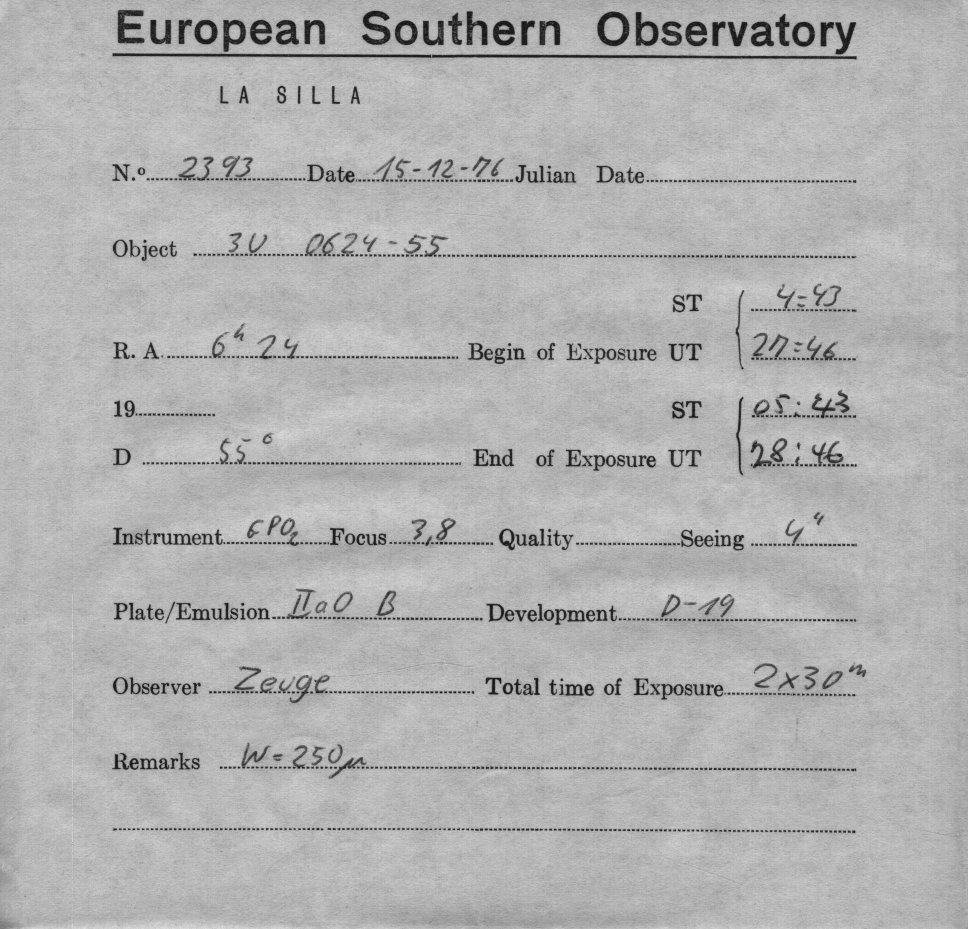 European Southern Observatory
LA SILLA
N.º 2393 Date 15-12-76 Julian Date
Object 3U 0624-55
ST 4=43
R. A. 6h 24 Begin of Exposure UT 27=46
19 ST 05:43
D 55° End of Exposure UT 28:46
Instrument GPO2 Focus 3,8 Quality Seeing 4"
Plate/Emulsion IIaO B Development D-19
Observer Zeuge Total time of Exposure 2x30m
Remarks W=250μ